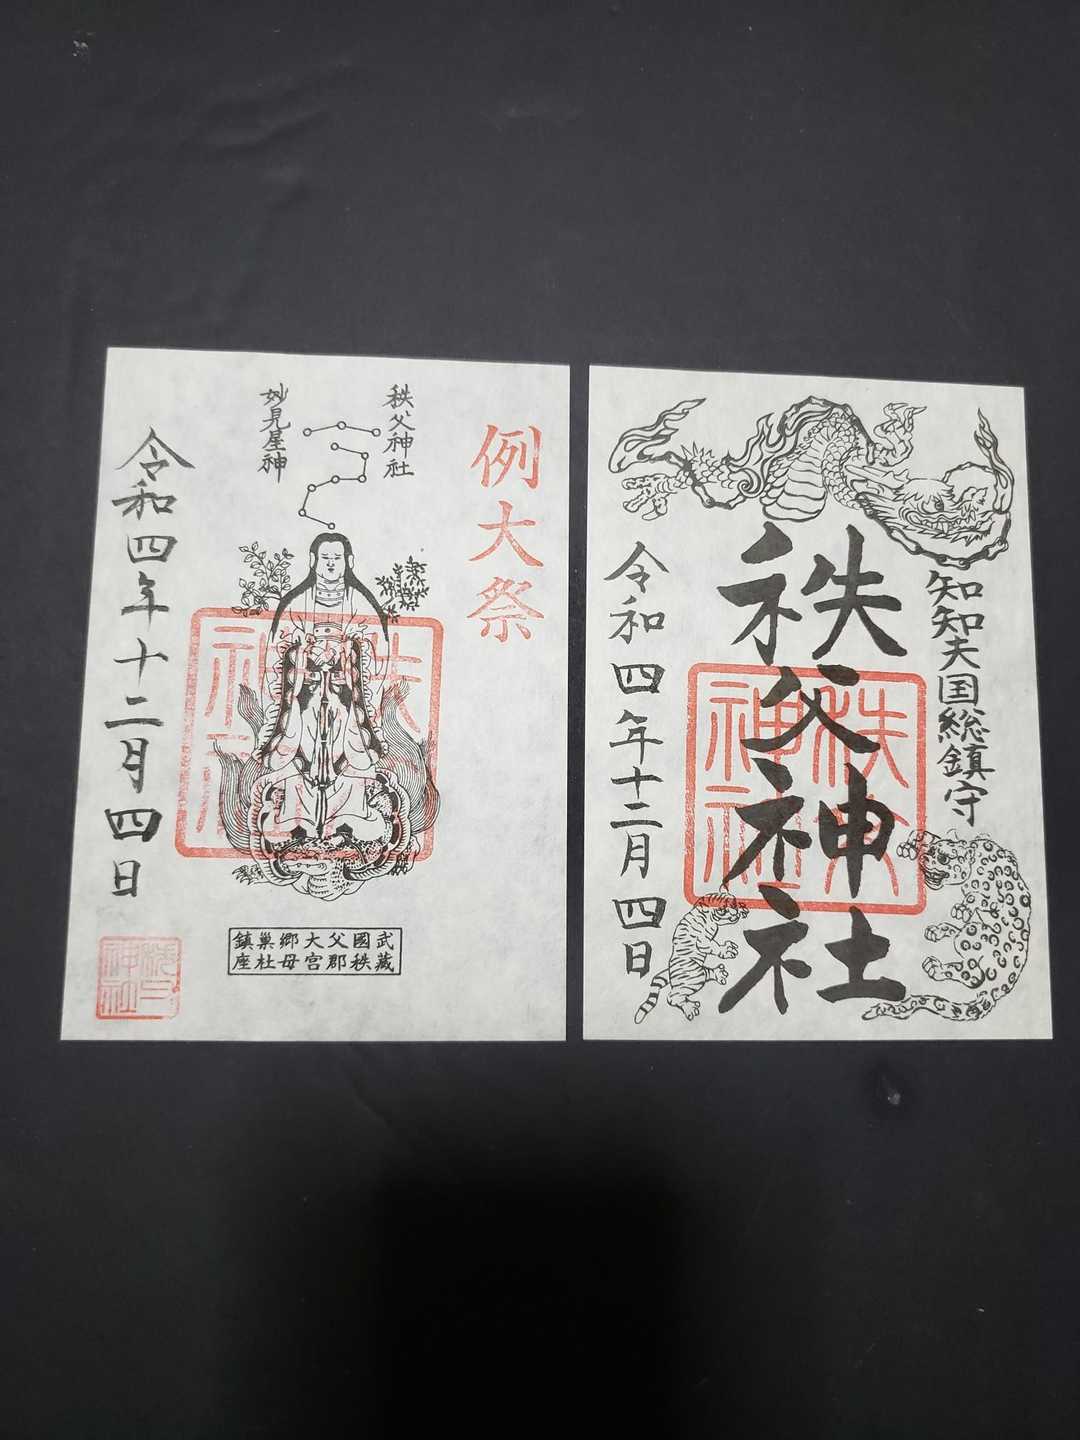 例大祭
秩父神社
妙見星神
秩父神社
令和四年十二月四日
武藏國秩父郡大宮郷母巣杜鎮座
神社
知知夫国総鎮守
秩父神社
秩父神社
令和四年十二月四日